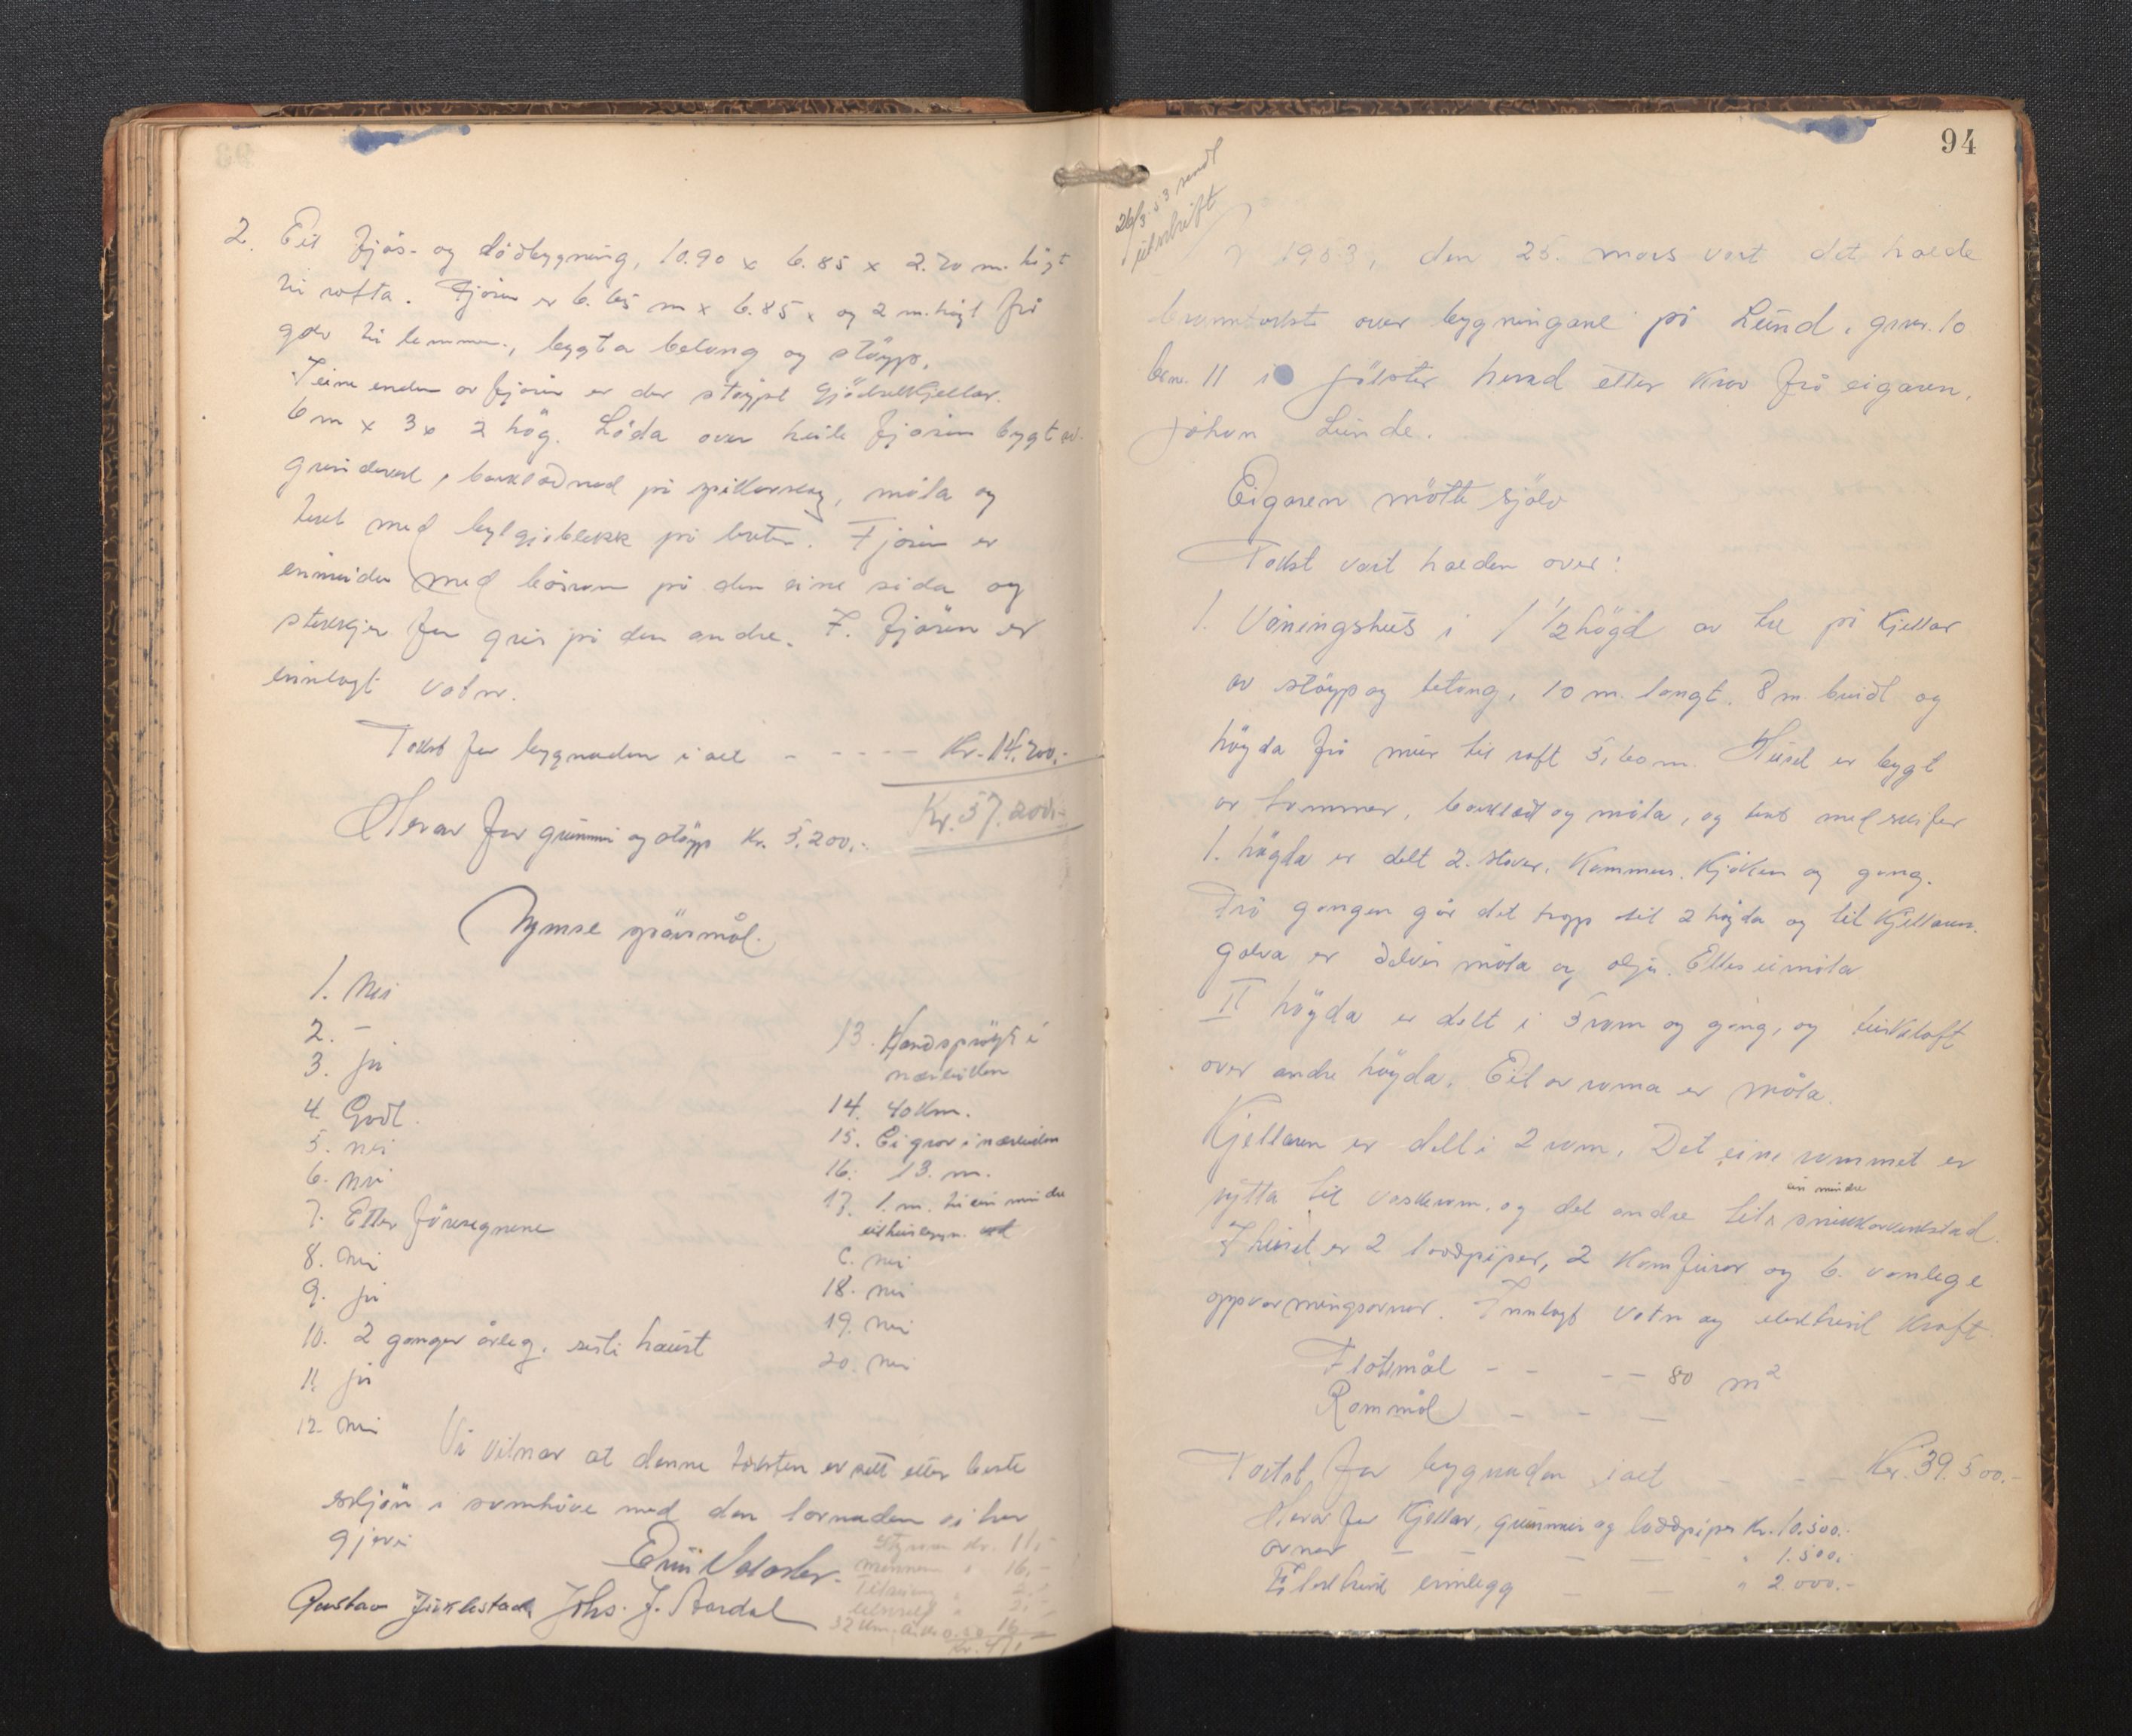 2. Eit fjös- og lödbygning, 10.90 x 6.85 x 2.70 m. högt
til rofta. Fjösen er 6.65 m x 6.85 x og 2 m. högt frå
golv til lemmen, bygt av betong og støyp.
I eine enden av fjösen er der støypt Gjödselkjellar.
6 m x 3 x 2 hög. Löda over heile fjösen bygt av
grindverk, bordklædned på spikarslag, måla og
tekt med bylgjeblekk på lekter. Fjösen er
innreidn med båsrom på den eine sida og
stekkjer for gris på den andre. I fjösen er
innlagt vatn.
Takst for bygnaden i alt - - - - - Kr. 14.700.-
Kr. 57.200.-
Herav for grunnmur og støyp Kr. 5.200.-
Ymse spörsmål.
1. Nei
2. -
3. Ja
4. Godt.
5. nei
6. nei
7. Etter föresegnene
8. nei
9. ja
10. 2 gonger årleg, sist i haust
11. ja
12. nei
13. Handspröyte i
næreiken
14. 40 Km.
15. Ei grov i næreiken
16. 13. m.
17. 1. m. til ein mindre
eldhusbygn.
C. nei
18. nei
19. nei
20. nei
Vi vitnar at denne taksten er sett etter beste
skjön i samhöve med den lovnaden vi har
gjeve
Gustav Jiklestad Johs. J. Aardal
Kr. 11,-
16,-
32 Km. 16
94
26/3-53 sendt
utskrift
I 1953, den 25. mars vart det halde
branntakst over bygningane på Lund, gnr. 10
bnr. 11 i Jölster herad etter krav frå eigaren,
Johan Lunde.
Eigaren mötte sjölv
Takst vart halden over:
1. Våningshus i 1 1/2 högd av tre på kjellar
av støyp og betong, 10 m. langt. 8 m. breidt og
högda frå mur til roft 5,60 m. Huset er bygt
av tommer, bordklædt og måla, og tekt med skifer
1. högda er delt 2. stover, Kammers, Kjöken og gang.
Frå gangen går det trapp til 2 högda og til Kjellaren.
Golva er delvis måla og olja. Elles umåla
II högda er delt i 5 rom og gang, og turkeloft
over andre högda. Eit av roma er måla.
Kjellaren er delt i 2 rom. Det eine rommet er
nytta til vaskerom, og det andre til ein mindre snikkarverkstad.
I huset er 2 loddpiper, 2 komfurar og 6. vanlege
oppvarmingsovnar. Innlagt vatn og elektrisk kraft.
Flatemål - - - - 80 m²
Rommål - - -
Takst for bygnaden i alt - - Kr. 39.500.-
Herav for Kjellar, grunnmur og loddpiper Kr. 10.500.-
ovnar - - - - " 1.500.-
Elektrisk innlegg - - " 2.000.-